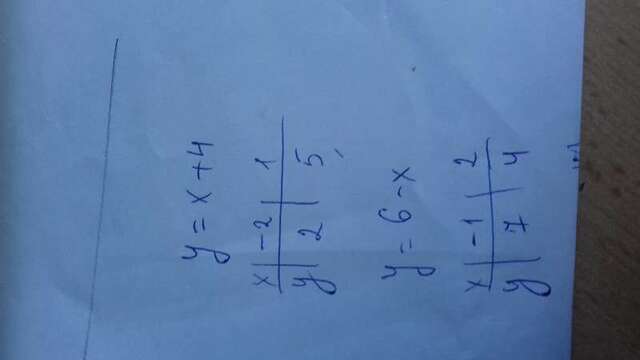 y = x + 4
x | -2 | 1
y | 2 | 5
y = 6 - x
x | -1 | 2
y | 7 | 4